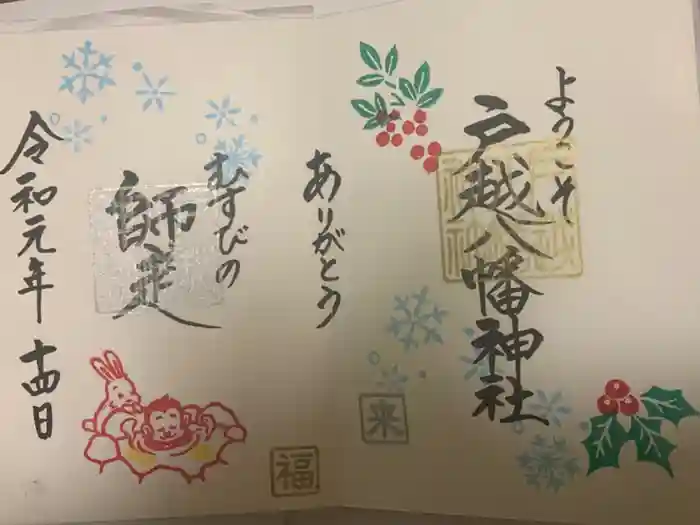 ようこそ
戸越八幡神社
来
ありがとう
福
むすびの
師走
令和元年 十四日